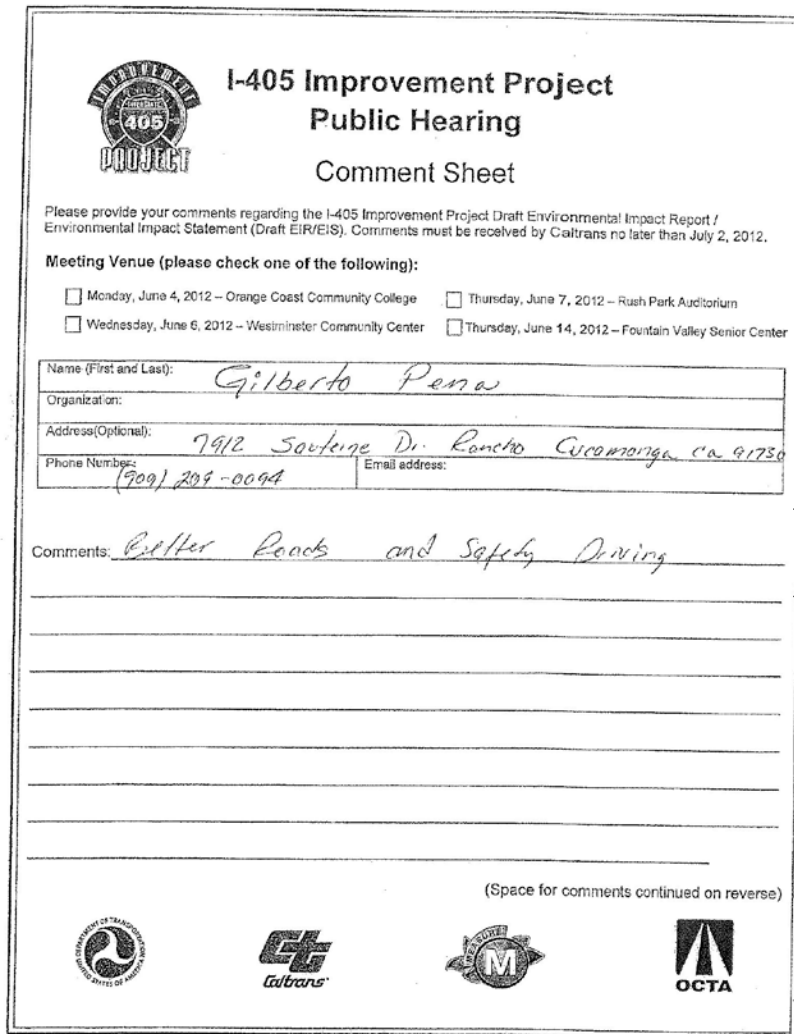 I-405 Improvement Project
Public Hearing
Comment Sheet
IMPROVEMENT
INTERSTATE
405
PROJECT
Please provide your comments regarding the I-405 Improvement Project Draft Environmental Impact Report /
Environmental Impact Statement (Draft EIR/EIS). Comments must be received by Caltrans no later than July 2, 2012.
Meeting Venue (please check one of the following):
Monday, June 4, 2012 – Orange Coast Community College
Thursday, June 7, 2012 – Rush Park Auditorium
Wednesday, June 6, 2012 – Westminster Community Center
Thursday, June 14, 2012 – Fountain Valley Senior Center
Name (First and Last): Gilberto Pena
Organization:
Address(Optional): 7912 Dr. Rancho Cucamonga Ca 91730
Phone Number: (909) 209-0094
Email address:
Comments: Better Roads and Safety Driving
(Space for comments continued on reverse)
DEPARTMENT OF TRANSPORTATION
UNITED STATES OF AMERICA
Caltrans
MEASURE
M
OCTA